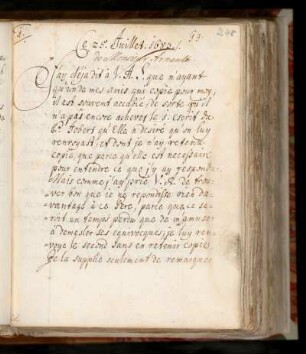 Ce 25e Juillet 1683.
de Monsieur Arnauld
J'ay deja dit à V. A. S. que n'ayant
qu'un de mes amis qui copie pour moy,
il est souvent accablé, de sorte qu'il
n'a pas encore achevé le s. escrit du
P. Jobert qu'Elle a desiré qu'on luy
renvoyast, et dont je n'ay retenu
copie, que parce qu'elle est necessaire
pour entendre ce que j'y ay respondu
Mais comme j'ay prié V. A. de trou-
ver bon que je ne reponisse rien da-
vantage à ce Pere, parce que ce se-
roit un temps perdu que de m'amuser
à demesler ses equivoques, je luy ren-
voye le second sans en retenir copie
Je la supplie seulement de remarquer